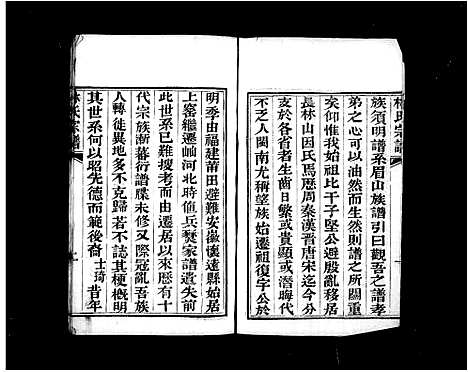 林氏宗譜
族須明譜系眉山族譜引曰觀吾之譜孝
弟之心可以油然而生然則譜之所關重
矣仰惟我始祖堅公避殷亂移居
長林山因氏焉歷周秦漢晉唐宋迄今分
支於各省者生齒日繁或貴顯或潛晦代
不乏人閩南尤稱望族始遷祖復字公於
明季由福建莆田避難安徽懷遠縣始居
上窑繼遷峋河北時値兵燹家譜遺失前
此世系已難搜考而由遷居以來歷有十
代宗族漸蕃衍譜牒未修又際寇亂吾族
人轉徙異地多不克歸若不誌其梗概明
其世系何以昭先德而範後裔士琦昔年
林氏宗譜